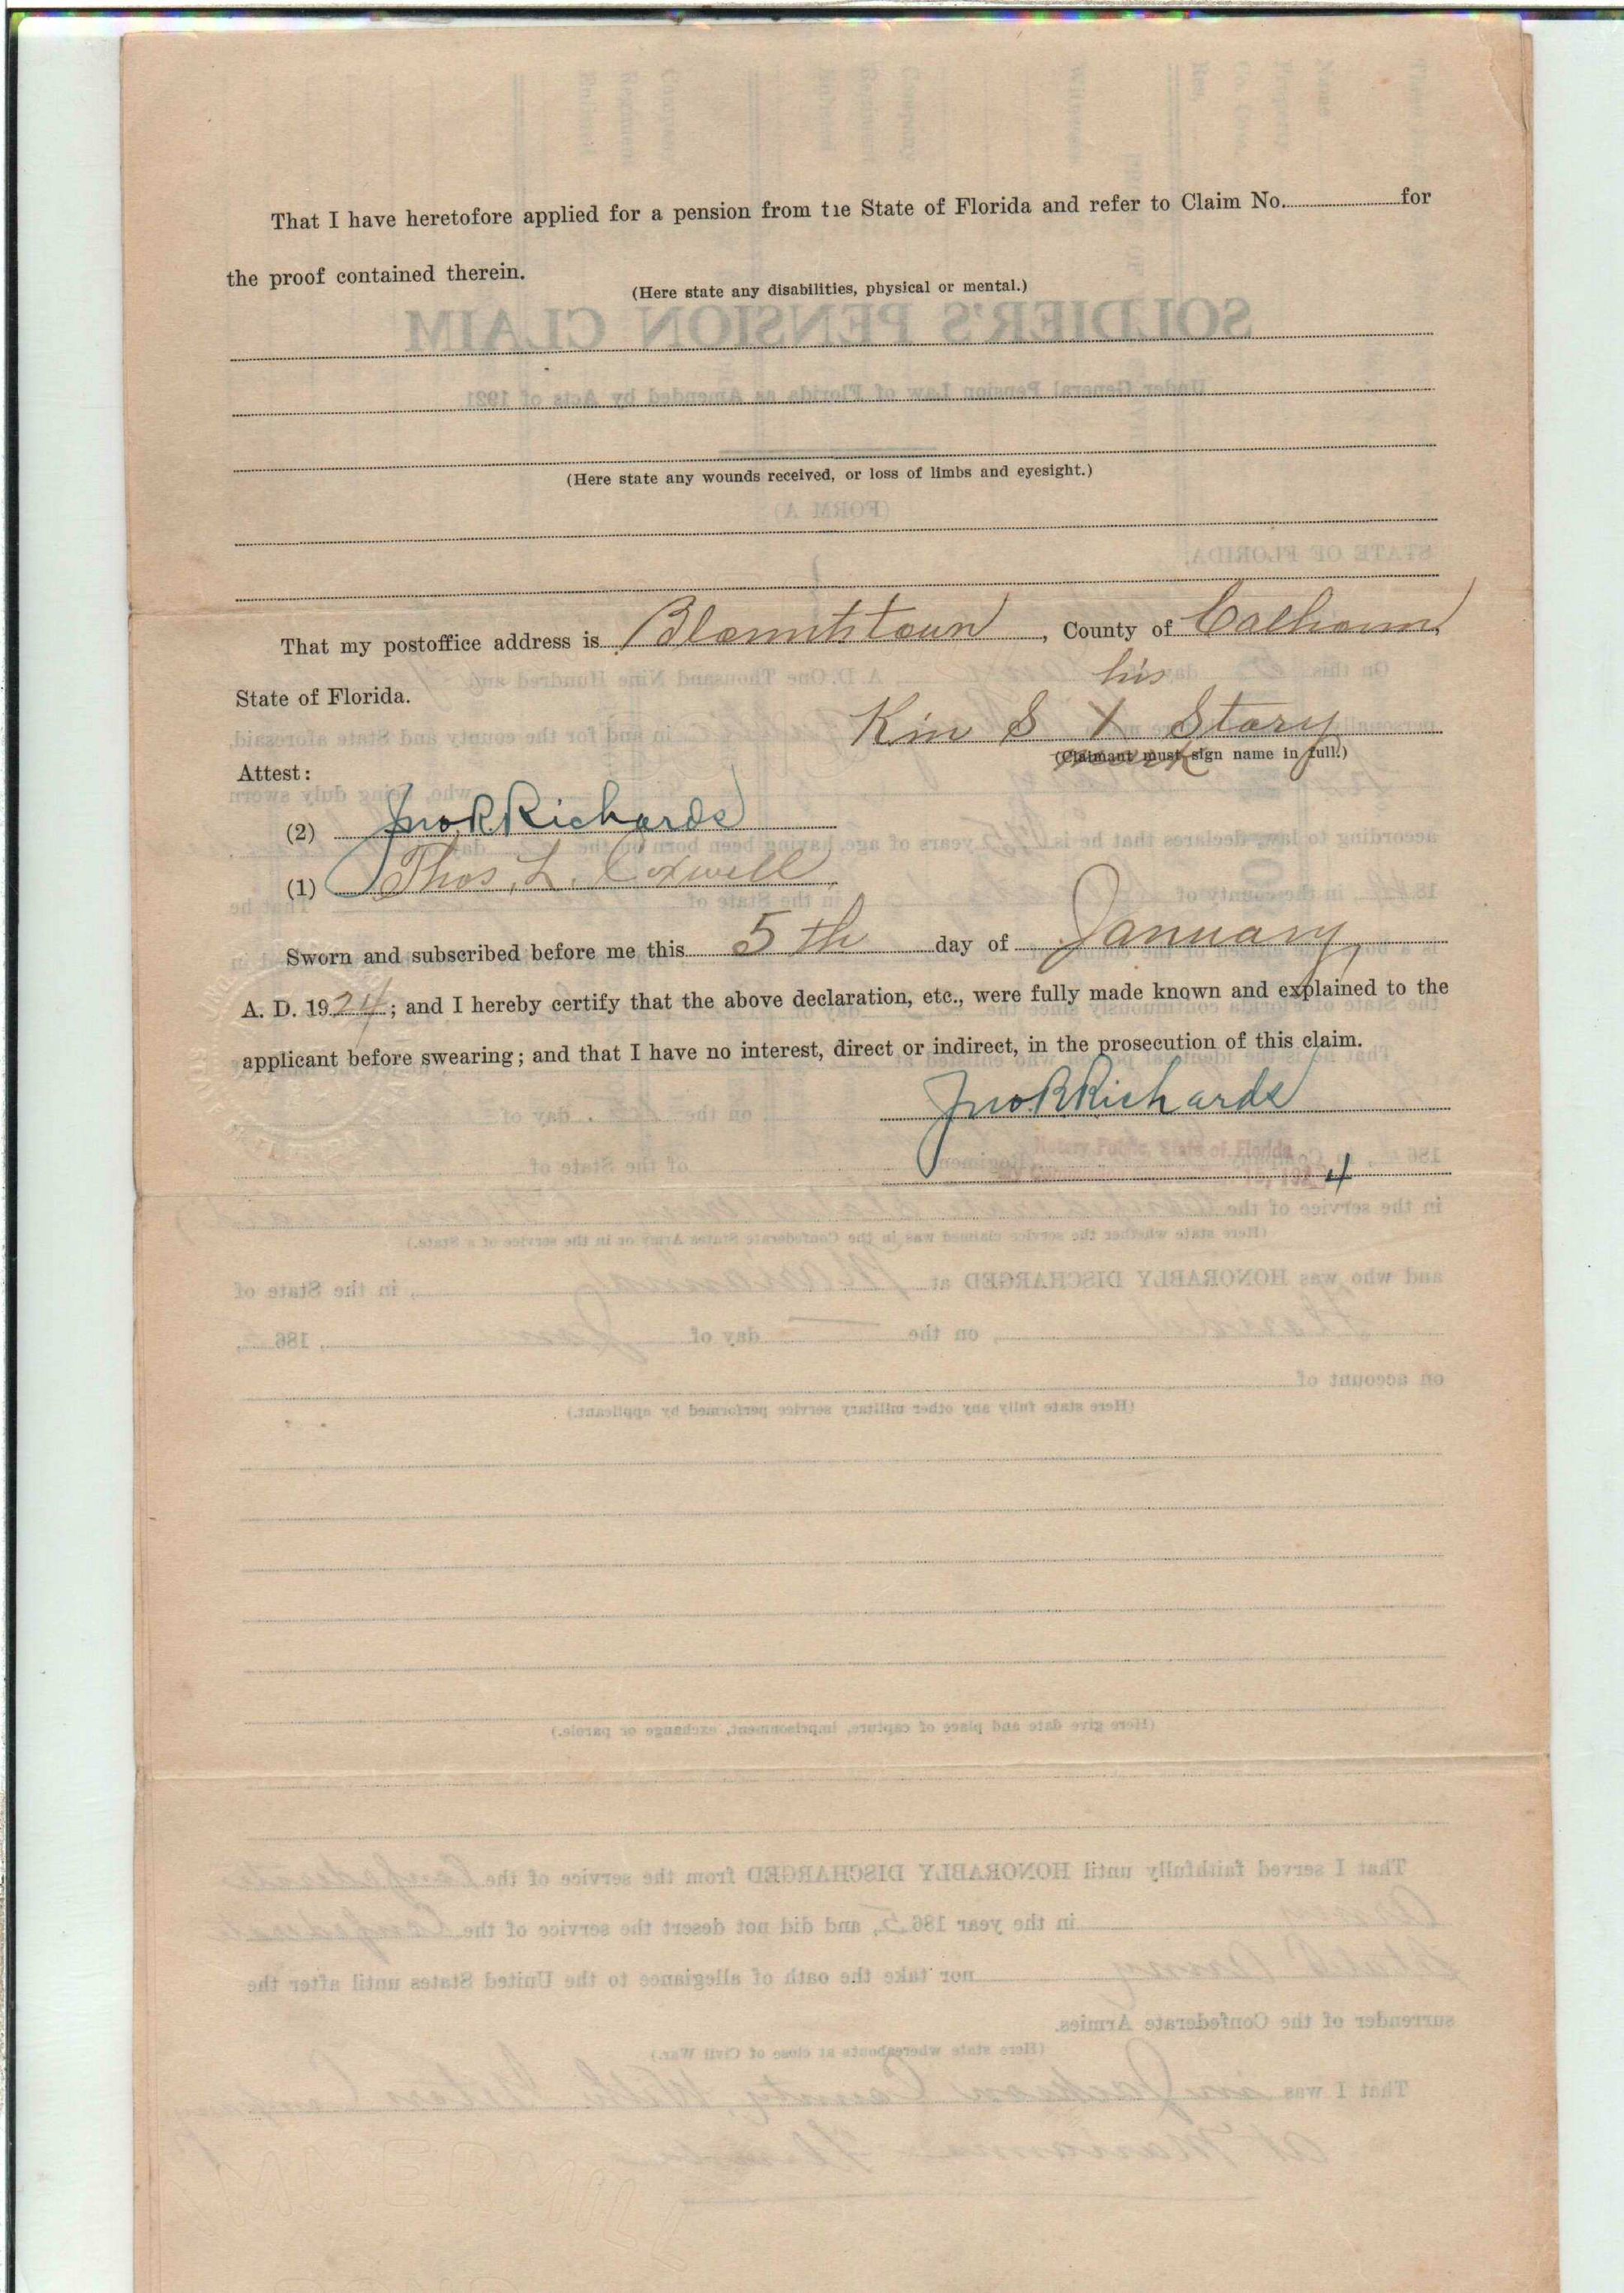 That I have heretofore applied for a pension from the State of Florida and refer to Claim No. for
the proof contained therein.
(Here state any disabilities, physical or mental.)
(Here state any wounds received, or loss of limbs and eyesight.)
That my postoffice address is Blountstown, County of Calhoun
State of Florida.
his
Kin S X Story
mark
(Claimant must sign name in full.)
Attest:
(2) Jno R Richards
(1) Thos. L. Coxwell
Sworn and subscribed before me this 5th day of January,
A. D. 1924; and I hereby certify that the above declaration, etc., were fully made known and explained to the
applicant before swearing; and that I have no interest, direct or indirect, in the prosecution of this claim.
Jno R Richards
Notary Public, State of Florida